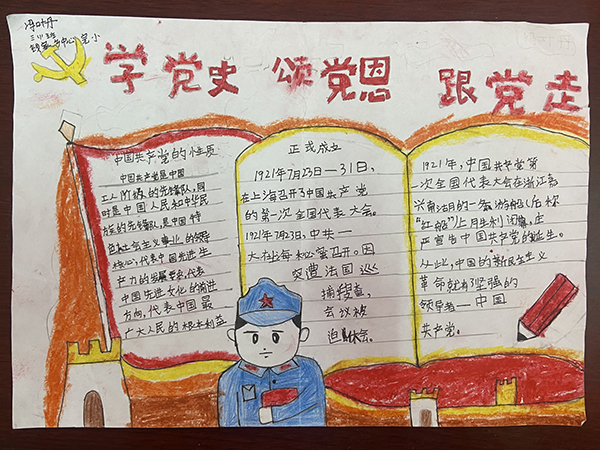 冯叶丹
三(1)班
中心完小
学党史 颂党恩 跟党走
中国共产党的性质
中国共产党是中国
工人阶级的先锋队,同
时是中国人民和中华民
族的先锋队,是中国特
色社会主义事业的领导
核心,代表中国先进生
产力的发展要求,代表
中国先进文化的前进
方向,代表中国最
广大人民的根本利益
正式成立
1921年7月23日—31日,
在上海召开了中国共产党
的第一次全国代表大会。
1921年7月23日,中共一
大在上海秘密召开。因
突遭法国巡
捕搜查,
会议被
迫休会。
1921年,中国共产党第
一次全国代表大会在浙江嘉
兴南湖的一条游船(后称
“红船”)上胜利闭幕,庄
严宣告中国共产党的诞生。
从此,中国的新民主主义
革命就有了坚强的
领导者—中国
共产党。